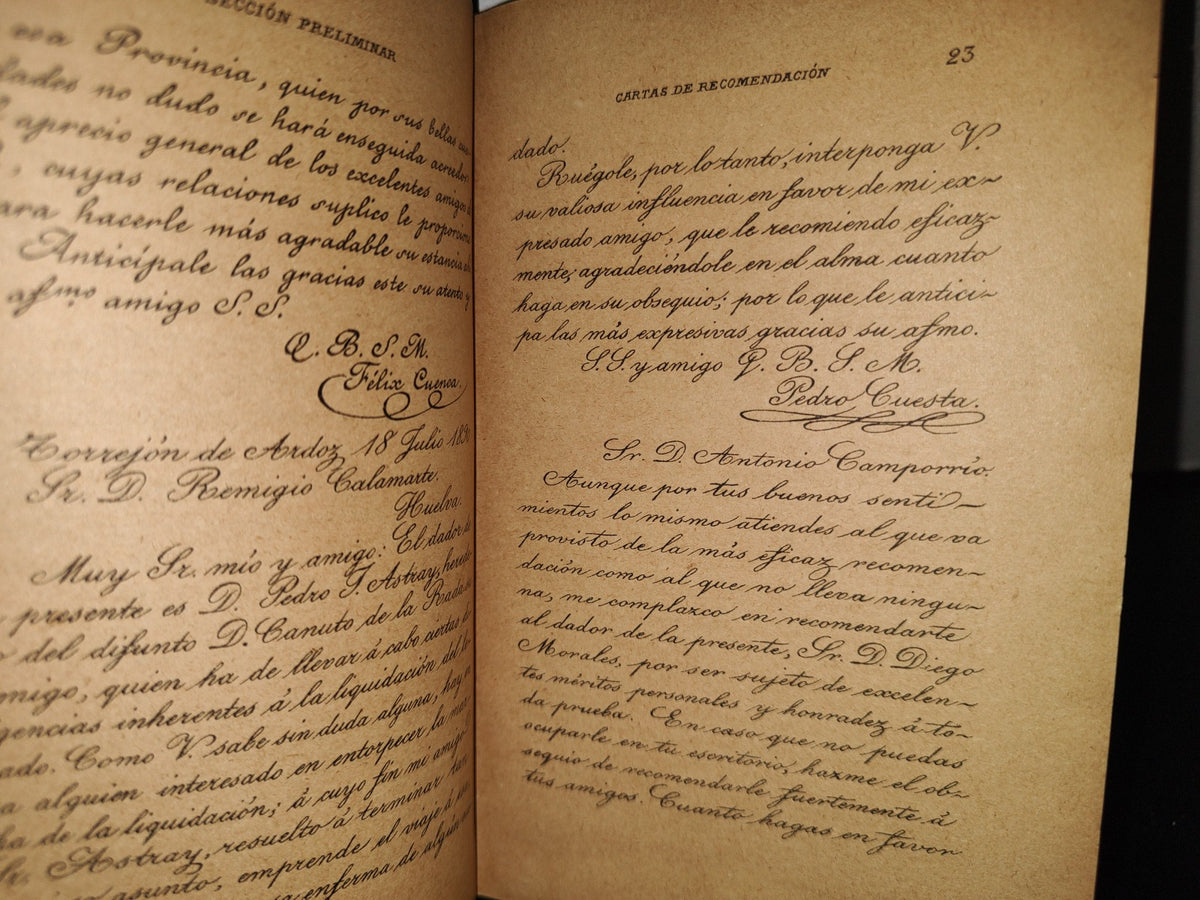 SECCIÓN PRELIMINAR
Provincia, quien por sus bellas
no dudo se hará enseguida acreedor
aprecio general de los excelentes amigos
, cuyas relaciones suplico le proporcione
hacerle más agradable su estancia
Anticípale las gracias este su atento y
afmo amigo S. S.
Q. B. S. M.
Félix Cuenca.
Torrejón de Ardoz 18 Julio
Sr. D. Remigio Calamarte.
Huelva.
Muy Sr. mío y amigo: El dador
presente es D. Pedro T. Astray,
del difunto D. Canuto de la Rada
, quien ha de llevar á cabo ciertas
inherentes á la liquidación del
Como V. sabe sin duda alguna, hay
alguien interesado en entorpecer la
de la liquidación; á cuyo fin mi amigo
Sr. Astray, resuelto á terminar tan
asunto, emprende el viaje á
enferma de algún
CARTAS DE RECOMENDACIÓN
23
dado.
Ruégole, por lo tanto, interponga V.
su valiosa influencia en favor de mi ex-
presado amigo, que le recomiendo eficaz-
mente, agradeciéndole en el alma cuanto
haga en su obsequio; por lo que le antici-
pa las más expresivas gracias su afmo.
S. S. y amigo Q. B. S. M.
Pedro Cuesta.
Sr. D. Antonio Camporrío.
Aunque por tus buenos senti-
mientos lo mismo atiendes al que va
provisto de la más eficaz recomen-
dación como al que no lleva ningu-
na, me complazco en recomendarte
al dador de la presente, Sr. D. Diego
Morales, por ser sujeto de excelen-
tes méritos personales y honradez á to-
da prueba. En caso que no puedas
ocuparle en tu escritorio, hazme el ob-
sequio de recomendarle fuertemente á
tus amigos. Cuanto hagas en favor